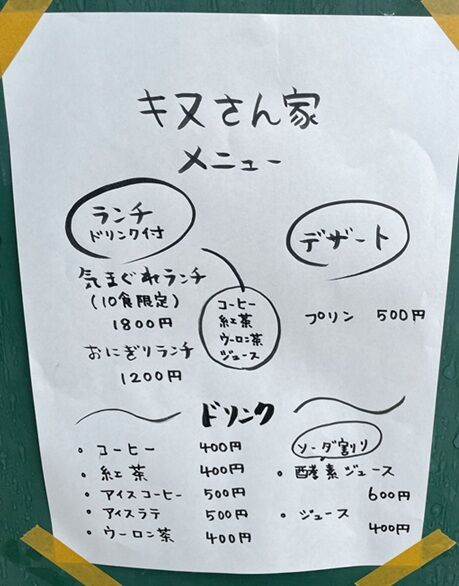 キヌさん家
メニュー
ランチ
ドリンク付
気まぐれランチ
(10食限定)
1800円
おにぎりランチ
1200円
コーヒー
紅茶
ウーロン茶
ジュース
デザート
プリン 500円
ドリンク
・コーヒー 400円
・紅茶 400円
・アイスコーヒー 500円
・アイスラテ 500円
・ウーロン茶 400円
ソーダ割り
・酵素ジュース
600円
・ジュース
400円